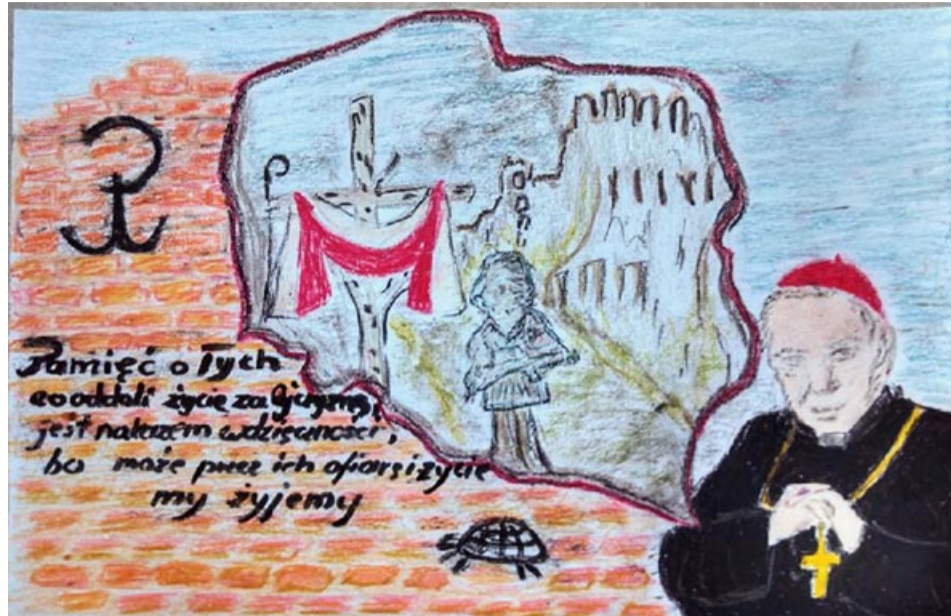 Pamięć o Tych
co oddali życie za Ojczyznę,
jest nakazem wdzięczności,
bo może przez ich ofiarę i życie
my żyjemy